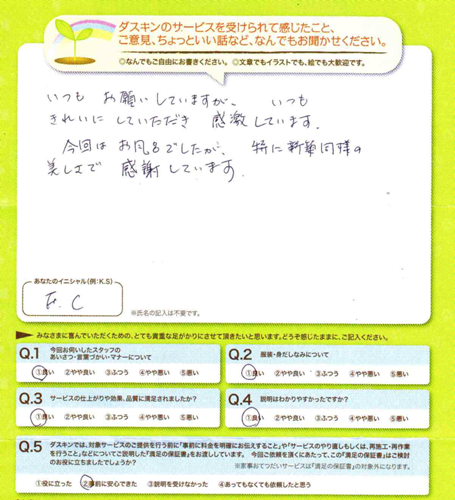 ダスキンのサービスを受けられて感じたこと、
ご意見、ちょっといい話など、なんでもお聞かせください。
◎なんでもご自由にお書きください。◎文章でもイラストでも、絵でも大歓迎です。
いつも お願いしていますが、 いつも
きれいに していただき 感激しています.
今回は お風呂でしたが、 特に新築同様の
美しさで 感謝しています.
あなたのイニシャル(例:K.S)
C
※氏名の記入は不要です。
みなさまに喜んでいただくための、とても貴重な足がかりにさせて頂きたいと思います。どうぞ感じたままに、ご記入ください。
Q.1 今回お伺いしたスタッフの
あいさつ・言葉づかい・マナーについて
①良い ②やや良い ③ふつう ④やや悪い ⑤悪い
Q.2 服装・身だしなみについて
①良い ②やや良い ③ふつう ④やや悪い ⑤悪い
Q.3 サービスの仕上がりや効果、品質に満足されましたか?
①良い ②やや良い ③ふつう ④やや悪い ⑤悪い
Q.4 説明はわかりやすかったですか?
①良い ②やや良い ③ふつう ④やや悪い ⑤悪い
Q.5 ダスキンでは、対象サービスのご提供を行う前に「事前に料金を明確にお伝えすること」や「サービスのやり直しもしくは、再施工・再作業
を行うこと」などについてご説明した「満足の保証書」をお渡ししています。 今回ご依頼を頂くにあたって、この「満足の保証書」はご検討
のお役に立ちましたでしょうか?
※家事おてつだいサービスは「満足の保証書」の対象外になります。
①役に立った ②事前に安心できた ③説明を受けなかった ④あってもなくても依頼したと思う